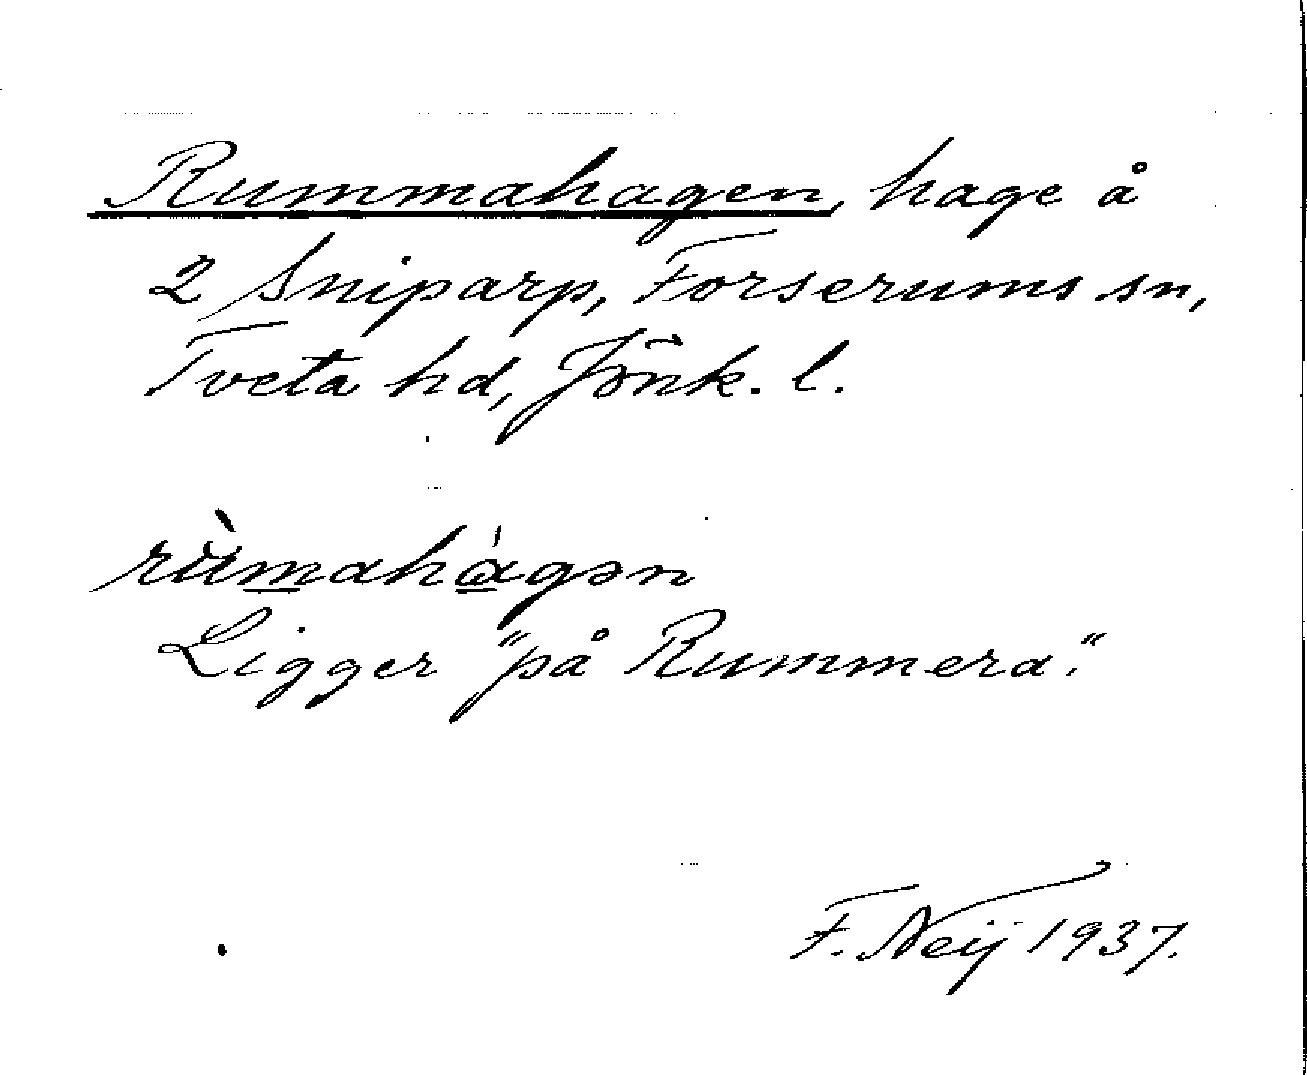 Rummahagen, hage å
2 Sniparp, Forserums sn,
Tveta hd, Jönk. l.
rùmahágən
Ligger "på Rummera".
F. Neij 1937.